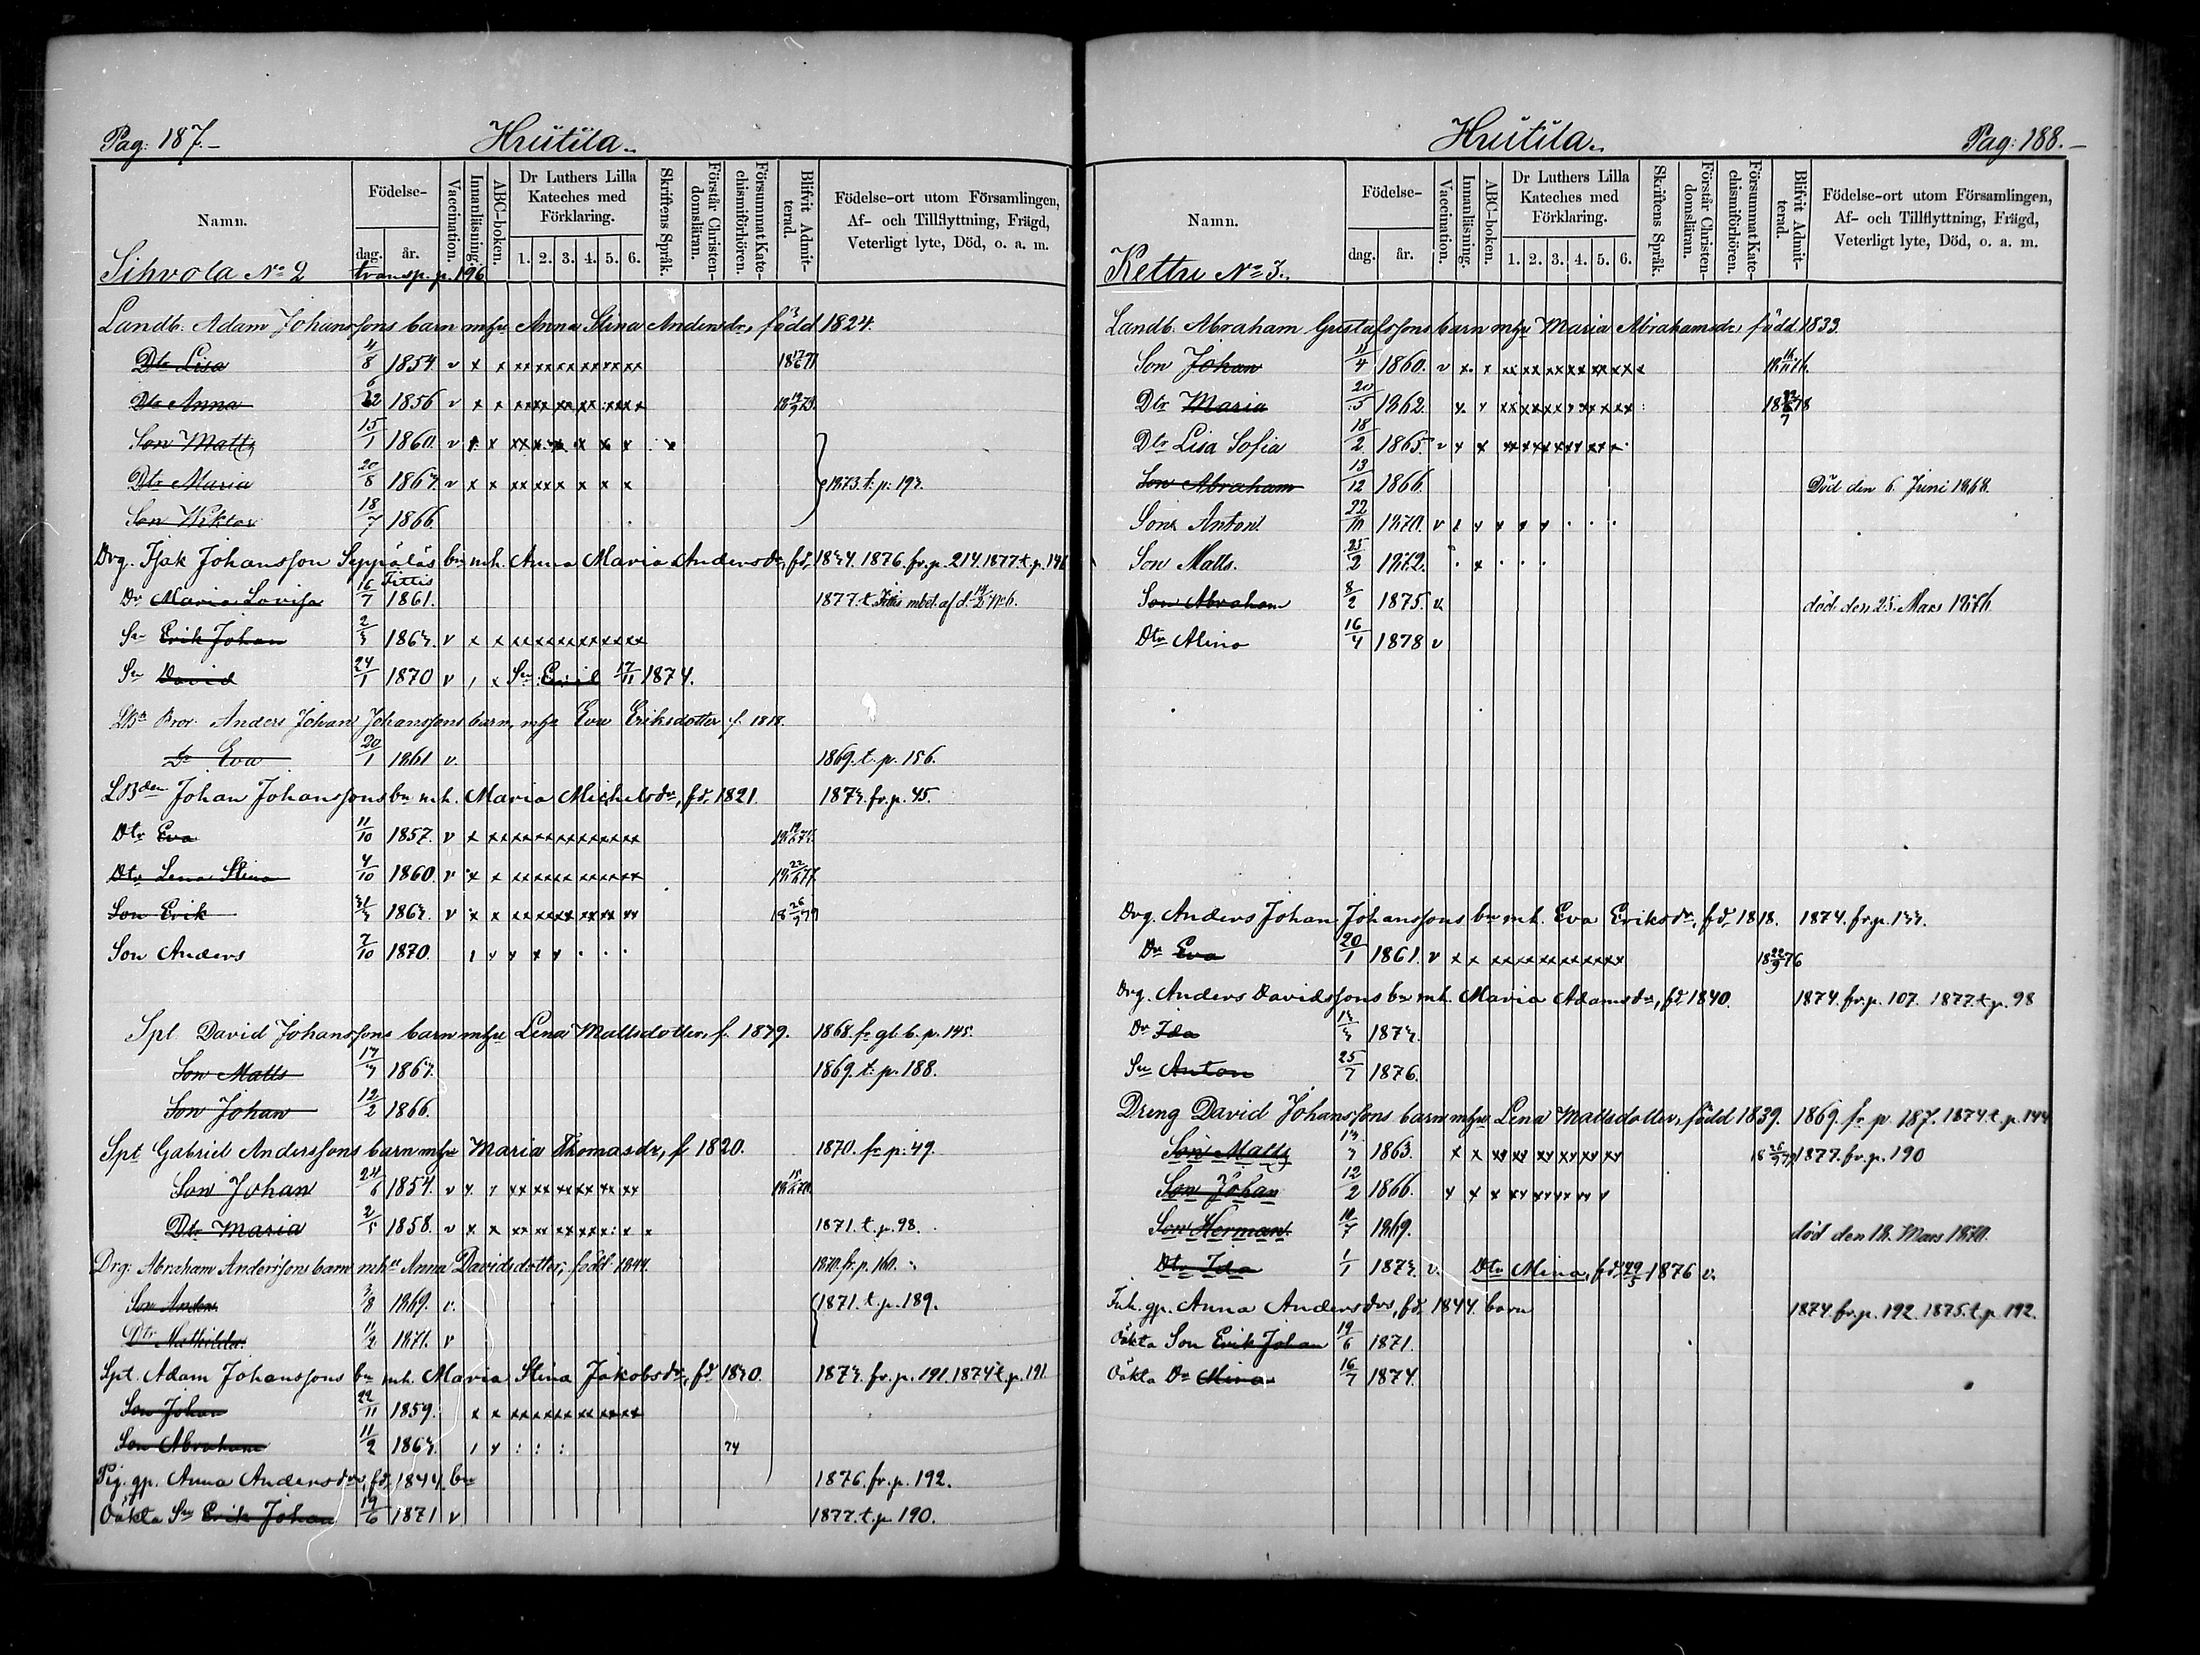 Pag: 187.
Huitila.
Namn.
Födelse-
dag. år.
Vaccination.
Innanläsning.
ABC-boken.
Dr Luthers Lilla Kateches med Förklaring.
1. 2. 3. 4. 5. 6.
Skriftens Språk.
Förstår Christen-domsläran.
Försummat Kate-chismiförhören.
Blifvit Admit-terad.
Födelse-ort utom Församlingen, Af- och Tillflyttning, Frägd, Veterligt lyte, Död, o. a. m.
Sihvola No 2 transp. p. 196
Landb. Adam Johanssons barn mhu Anna Stina Andersdr, född 1824.
Dtr Lisa 11/8 1854. v x x
Dtr Anna 1856 v x x
Son Matts 15/1 1860. v x x
Dtr Maria 20/8 1863. v x x 1873. t. p. 193.
Son Wiktor 18/7 1866.
Drg. Isak Johansson Seppäläs bn mh. Anna Maria Andersdr, fd. 1834. 1876. fr. p. 214. 1877. t. p.
Dr Maria Lovisa 16/7 Tittis 1861.
Sn Erik Johan 2/3 1863. v x x
Sn David 24/1 1870 v Sn Emil 17/11 1874.
Anders Johan Johanssons barn, mhu Eva Eriksdotter f. 1818.
Dr Eva 20/1 1861 v. 1869. t. p. 156.
LBden Johan Johanssons bn mh. Maria Michelsdr, fd. 1821. 1873. fr. p. 45.
Dtr Eva 11/10 1857. v x
Dtr Lena Stina 4/10 1860. v x x
Son Erik 31/3 1863. v x x
Son Anders 7/10 1870.
Spt David Johanssons barn mhu Lena Mattsdotter, f. 1839. 1868. fr gl. b. p. 145.
Son Matts 13/3 1863. 1869. t. p. 188.
Son Johan 12/2 1866.
Spt Gabriel Anderssons barn mhu Maria Thomasdr, f 1820. 1870. fr p. 49.
Son Johan 24/6 1854. v x
Dtr Maria 2/5 1858. v x x 1871. t. p. 98.
Drg. Abraham Anderssons barn mhu Anna Davidsdotter, född 1844. 1870. fr. p. 160.
Son Anders 3/8 1869. v. 1871. t. p. 189.
Dtr Mathilda. 11/2 1871. v
Spt. Adam Johanssons bn mh. Maria Stina Jakobsdr, fd 1830. 1873. fr. p. 191. 1874 t. p. 191.
Son Johan 22/11 1859. x x
Son Abraham 11/2 1863. 74
Pig. gp. Anna Andersdrs, fd. 1844. bn 1876. fr. p. 192.
Oäkta Sn Erik Johan 19/6 1871 v 1877. t. p. 190.
Huitila.
Pag: 188.
Namn.
Födelse-
dag. år.
Vaccination.
Innanläsning.
ABC-boken.
Dr Luthers Lilla Kateches med Förklaring.
1. 2. 3. 4. 5. 6.
Skriftens Språk.
Förstår Christen-domsläran.
Försummat Kate-chismiförhören.
Blifvit Admit-terad.
Födelse-ort utom Församlingen, Af- och Tillflyttning, Frägd, Veterligt lyte, Död, o. a. m.
Kettu No 3.
Landb. Abraham Gustafssons barn mhu Maria Abrahamsdr, född 1833.
Son Johan 11/4 1860. v x x
Dtr Maria 20/5 1862. x
Dtr Lisa Sofia 18/2 1865. v x x
Son Abraham 13/12 1866. Död den 6. Juni 1868.
Son Anton 22/10 1870. v
Son Matts. 25/2 1872.
Son Abraham 8/2 1875. v. död den 25. Mars 1876.
Dtr Alina 16/4 1878 v
Drg. Anders Johan Johanssons bn mh. Eva Eriksdr, fd. 1818. 1874. fr. p. 133.
Dr Eva 20/1 1861. v x x 18 22/9 76
Drg. Anders Davidssons bn mh. Maria Adamsdr, fd. 1840. 1874. fr. p. 107. 1877. t. p. 98
Dr Ida 13/3 1873.
Sn Anton 25/7 1876.
Dreng David Johanssons barn mhu Lena Mattsdotter, född 1839. 1869. fr p 187. 1874 t. p. 144
Son Matts 13/3 1863. x x 1877. fr. p. 190
Son Johan 12/2 1866. x x x
Son Herman 10/7 1869. död den 18. Mars 1870.
Dtr Ida 1/1 1873. v. Dtr Mina, fd. 29/5 1876 v.
Inh. gp. Anna Andersdrs, fd. 1844. barn 1874. fr. p. 192. 1875. t. p. 192.
Oäkta Son Erik Johan 19/6 1871.
Oäkta Dr Mina 16/7 1874.